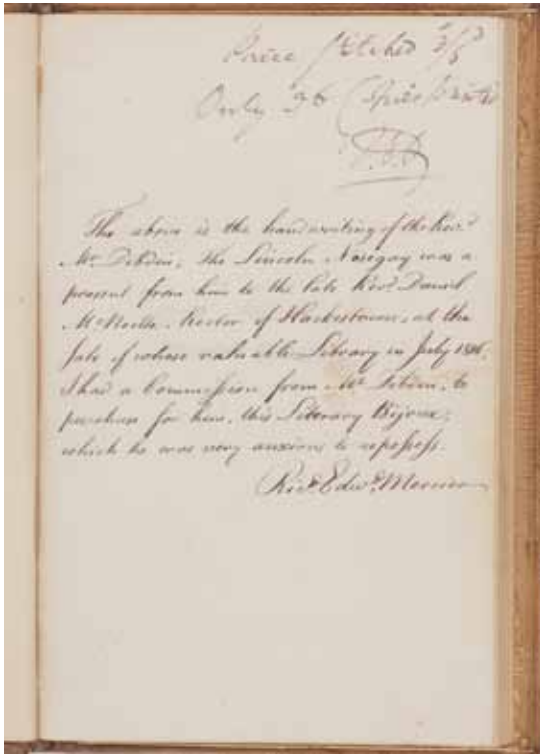 Price fetched
Only 36 Copies printed
T.F.D
The above is the handwriting of the Revd
Mr. Dibdin; the Lincoln Nosegay was a
present from him to the late Revd. Daniel
Rector of Hacketstown, at the
sale of whose valuable Library in July
I had a Commission from Mr. Dibdin, to
purchase for him, this Literary Bijoux;
which he was very anxious to repossess.
Revd. Edwd.